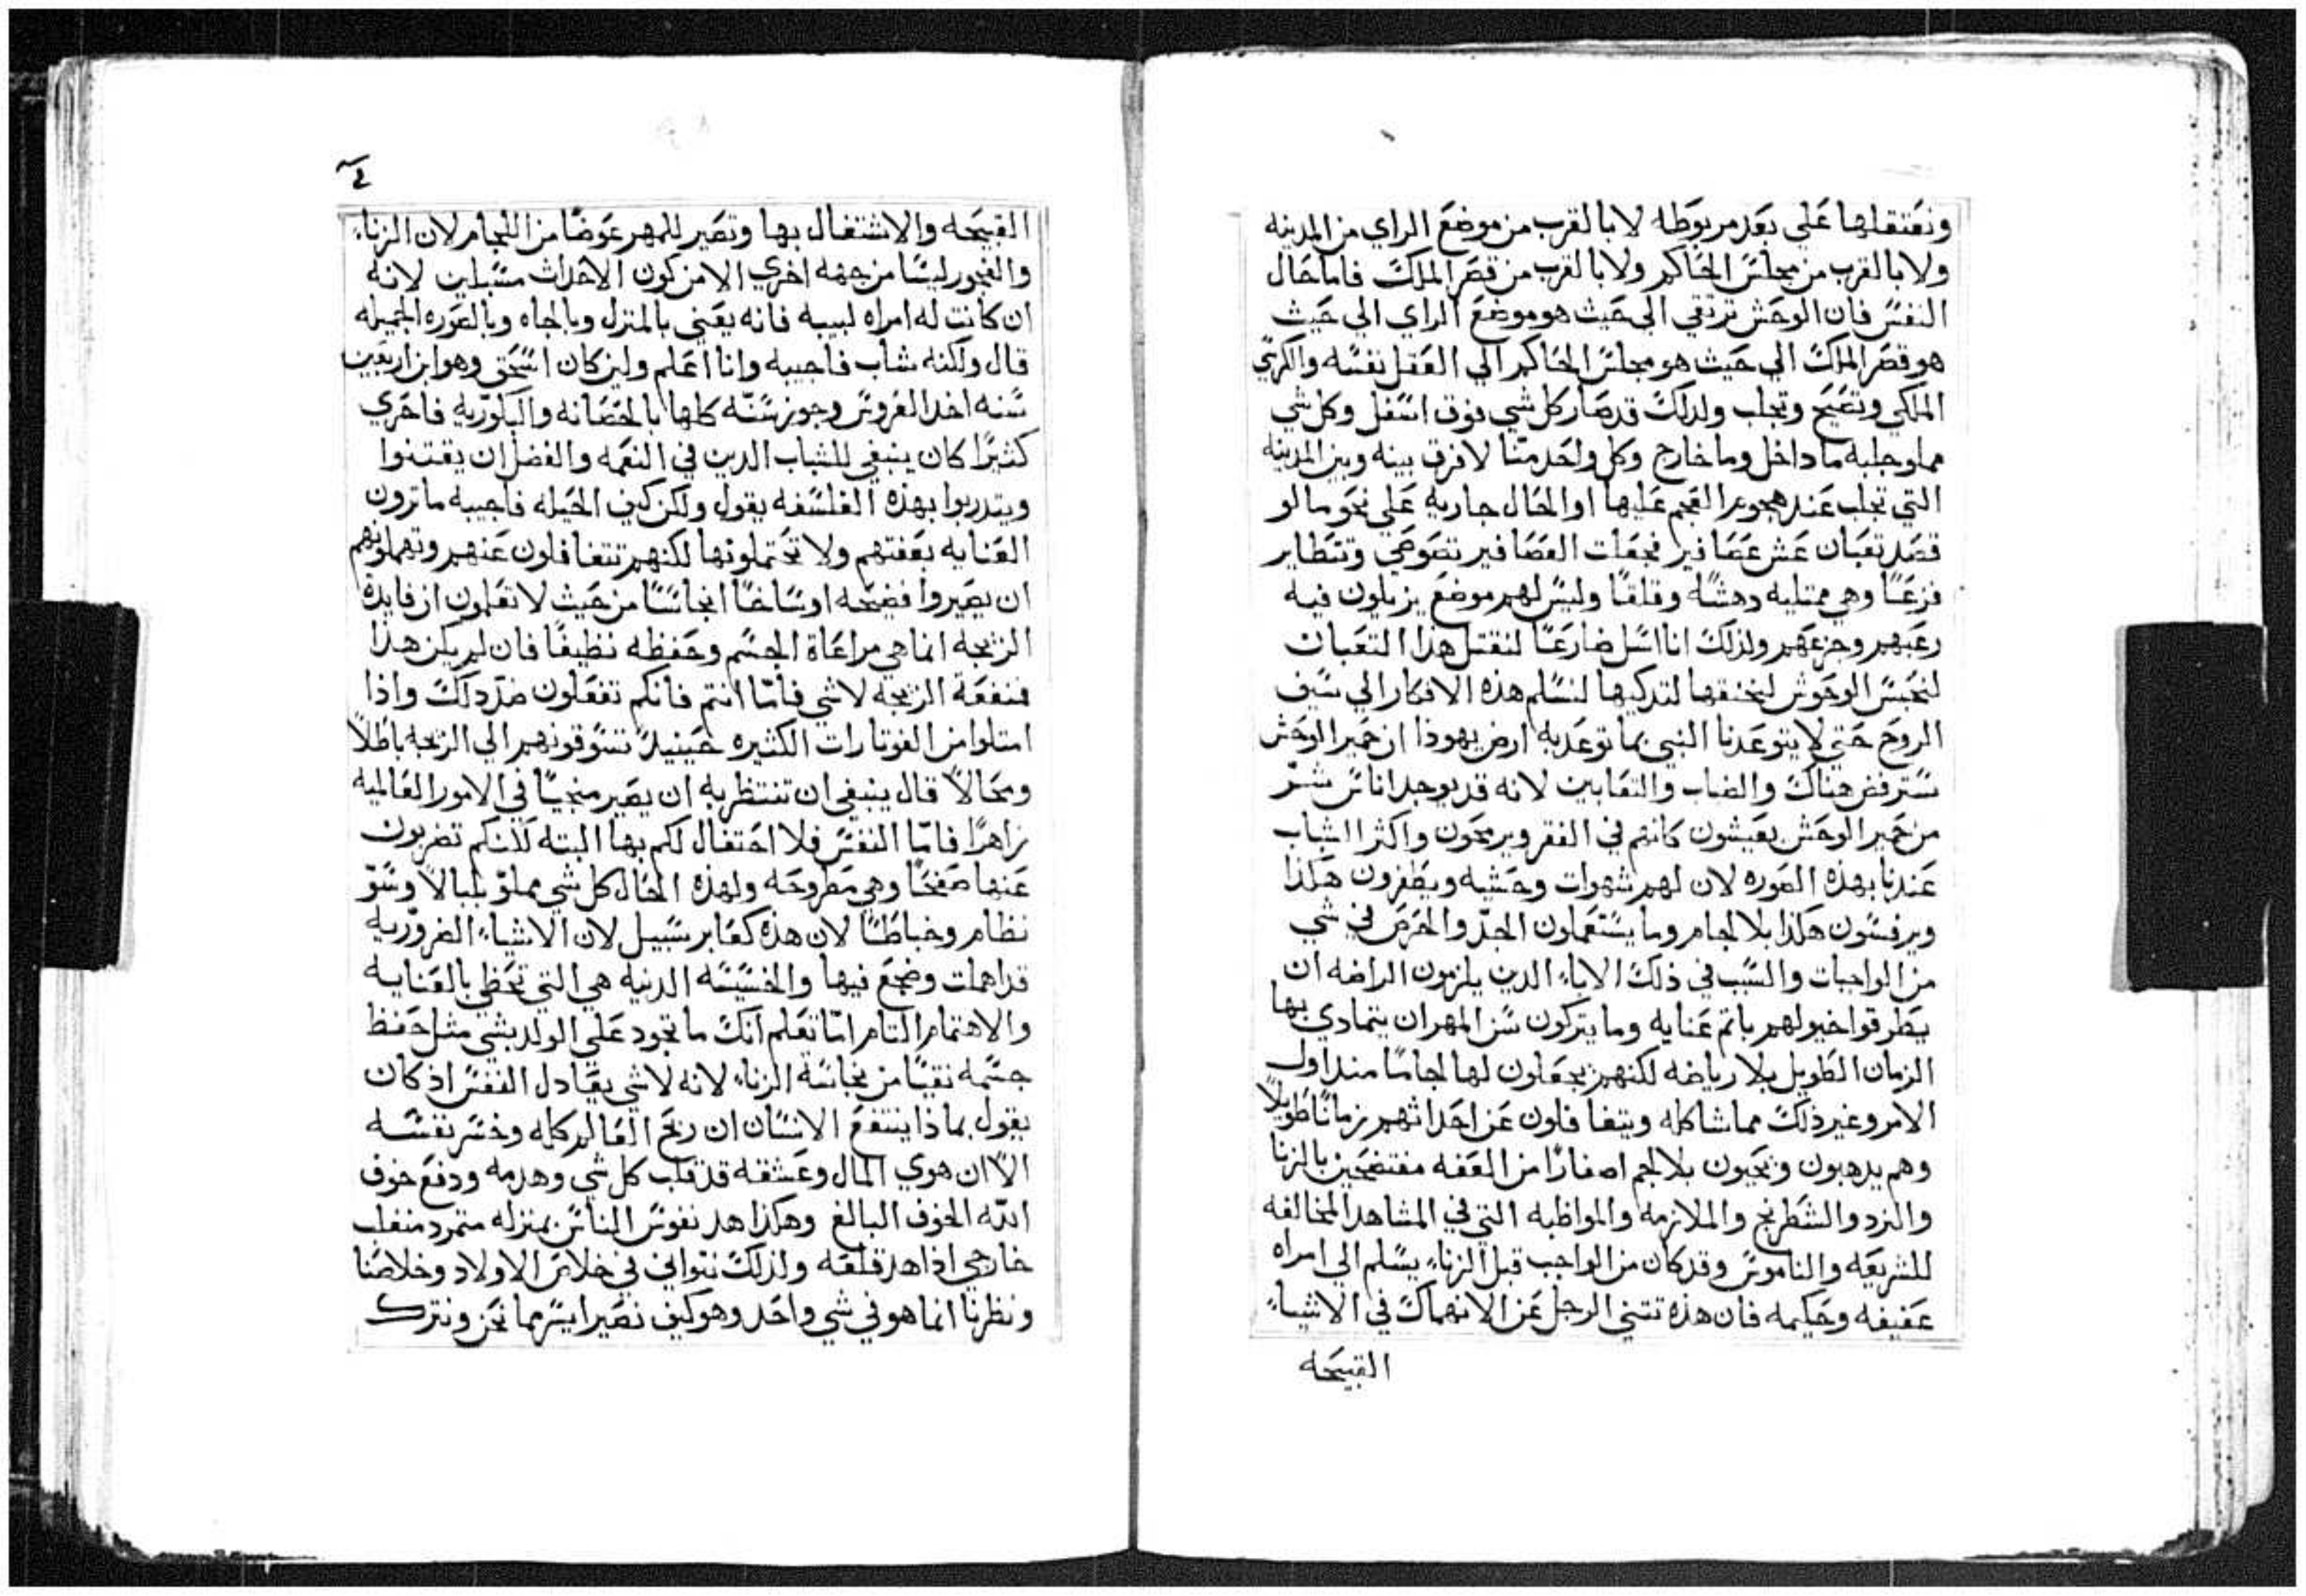 ونعتقلها علي بعد مربوطه لا بالقرب من موضع الراي من المدينه
ولا بالقرب من مجلس الحاكم ولا بالقرب من قصر الملك فاما حال
النفس فان الوحش ترتقي الي حيث هو موضع الراي الي حيث
هو قصر الملك الي حيث هو مجلس الحاكم الي العقل نفسه والكرسي
الملكي وتضج وتجلب ولدلك قد صار كل شي فوق اسفل وكل شي
مملو جلبه ما داخل وما خارج وكل واحد منّا لا فرق بينه وبين المدينه
التي تجلب عند هجوم العجم عليها او الحال جاريه علي نحو ما لو
قصد تعبان عش عصافير فجعلت العصافير تصوصي وتتطاير
فزعًا وهي ممتليه دهشه وقلقًا وليس لهم موضع يزيلون فيه
رعبهم وجزعهم ولذلك انا اسل ضارعًا لنقتل هذا التعبان
لنحبس الوحوش لنخنقها لتدكيها لنسلم هذه الافكار الي سيف
الروح حتي لا يتوعدنا النبي بما توعد به ارض يهوذا ان حمير الوحش
سترفض هناك والضباب والتعابين لانه قد يوجد اناس شر
من حمير الوحش يعيشون كانهم في القفر ويرمحون واكثر الشباب
عندنا بهذه الصوره لان لهم شهوات وحشيه ويطفرون هكذا
ويرفسون هكذا بلا لجام وما يستعملون الجدّ والحرص في شي
من الواجبات والسبب في ذلك الاباء الدين يلزمون الراضه ان
يطرقوا خيولهم باتم عنايه وما يتركون سن المهران يتمادي بها
الزمان الطويل بلا رياضه لكنهم يجعلون لها لجامًا مند اول
الامر وغير ذلك مما شاكله ويتغافلون عن احداثهم زمانًا طويلًا
وهم يدهبون ويجيون بلا لجم اصفارًا من العفه مفتضحين بالزنا
والنرد والشطرنج والملازمه والمواظبه التي في المشاهد المخالفه
للشريعه والناموس وقد كان من الواجب قبل الزناء يسلم الي امراه
عفيفه وحكيمه فان هذه تتني الرجل عن الانهماك في الاشياء
القبيحه
القبيحه والاشتغال بها وتصير للمهر عوضًا من اللجام لان الزناء
والفجور ليسا من جهه اخري الا من كون الاحداث مسبلين لانه
ان كانت له امراه لبيبه فانه يعني بالمنزل وبالجاه وبالصوره الجميله
قال ولكنه شاب فاجيبه وانا اعلم ولين كان اسحق وهو ابن اربعين
سنه اخد العروس وجوز سنّه كلها بالحصانه والبكوريه فاحري
كثيرًا كان ينبغي للشباب الدين في النعمه والفضل ان يقتنوا
ويتدربوا بهذه الفلسفه يقول ولكن كيف الحيله فاجيبه ما ترون
العنايه بعفتهم ولا تحتملونها لكنهم تتغافلون عنهم وتهملونهم
ان يصيروا فضيحه اوساخًا انجاسًا من حيث لا تعلمون ان فايدة
الزيجه انما هي مراعاة الجسم وحفظه نظيفًا فان لم يكن هذا
فمنفعة الزيجه لا شي فأمّا انتم فانكم تفعلون ضدّ دلك واذا
امتلوا من الكثيره حينيد تسوقونهم الي الزيجه باطلًا
ومحالًا قال ينبغي ان تنتظر به ان يصير منجبًا في الامور العالميه
زاهرًا فامّا النفس فلا احتفال لكم بها البته لانكم تضربون
عنها صفحًا وهي مطروحه ولهذه الحال كل شي مملوّ بلبالًا وسوّ
نظام وخباطًا لان هذه كعابر سبيل لان الاشياء الضروّريه
قد اهملت وضجع فيها والخسيسه الدنيه هي التي تحظي بالعنايه
والاهتمام التام امّا تعلم انك ما تجود علي الولد بشي مثل حفظ
جسمه نقيًا من نجاسة الزناء لانه لا شي يعادل النفس اذ كان
يقول بماذا ينتفع الانسان ان ربح العالم كله وخسر نفسه
الّا ان هوي المال وعشقه قد قلب كل شي وهدمه ودفع خوف
الله الخوف البالغ وهكذا هد نفوس الناس بمنزله متمرد متغلب
خارجي اذا هد قلعه ولذلك نتواني في خلاص الاولاد وخلاصنا
ونظرنا انما هو في شي واحد وهو كيف نصير ايسر مما نحن ونترك